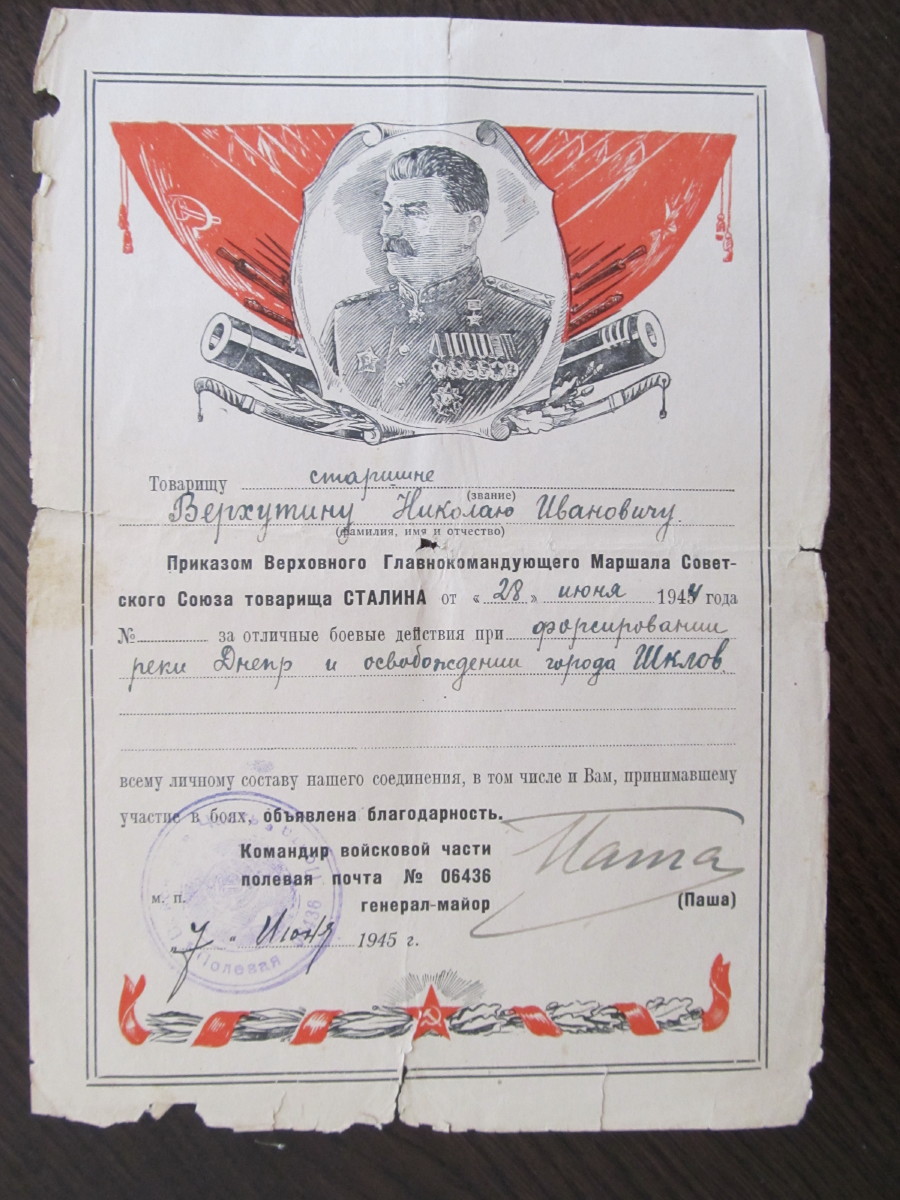 Товарищу старшине
(звание)
Верхутину Николаю Ивановичу
(фамилия, имя и отчество)
Приказом Верховного Главнокомандующего Маршала Совет-
ского Союза товарища СТАЛИНА от «28» июня 1944 года
№ за отличные боевые действия при форсировании
реки Днепр и освобождении города Шклов
всему личному составу нашего соединения, в том числе и Вам, принимавшему
участие в боях, объявлена благодарность.
Командир войсковой части
полевая почта № 06436
генерал-майор
Паша
(Паша)
м. п.
„7" Июня 1945 г.
Полевая